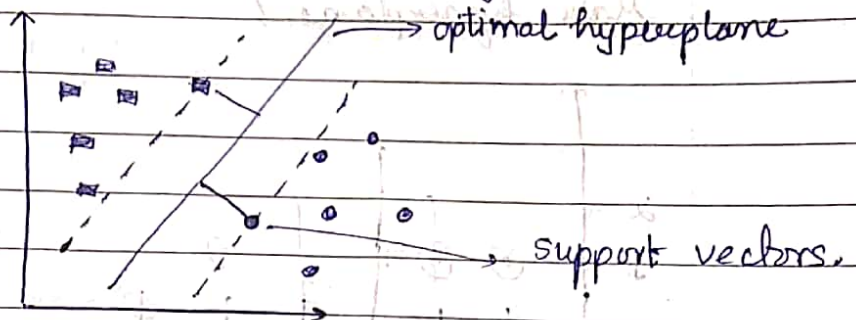 optimal hyperplane
support vectors.